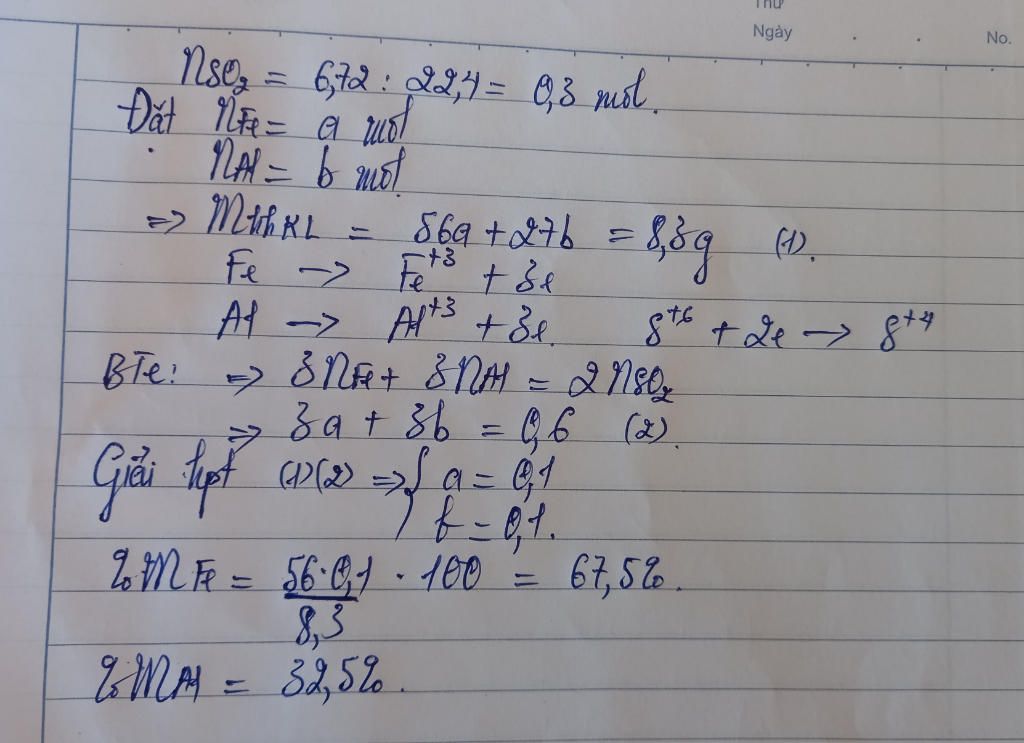 Thứ
Ngày . . No.
nSO₂ = 6,72 : 22,4 = 0,3 mol.
Đặt nFe = a mol
nAl = b mol
=> mhhKL = 56a + 27b = 8,3g (1).
Fe → Fe⁺³ + 3e
Al → Al⁺³ + 3e. S⁺⁶ + 2e → S⁺⁴
BTe: => 3nFe + 3nAl = 2nSO₂
=> 3a + 3b = 0,6 (2).
Giải hpt (1)(2) => { a = 0,1
b = 0,1.
%mFe = 56·0,1 · 100 = 67,5%.
8,3
%mAl = 32,5%.